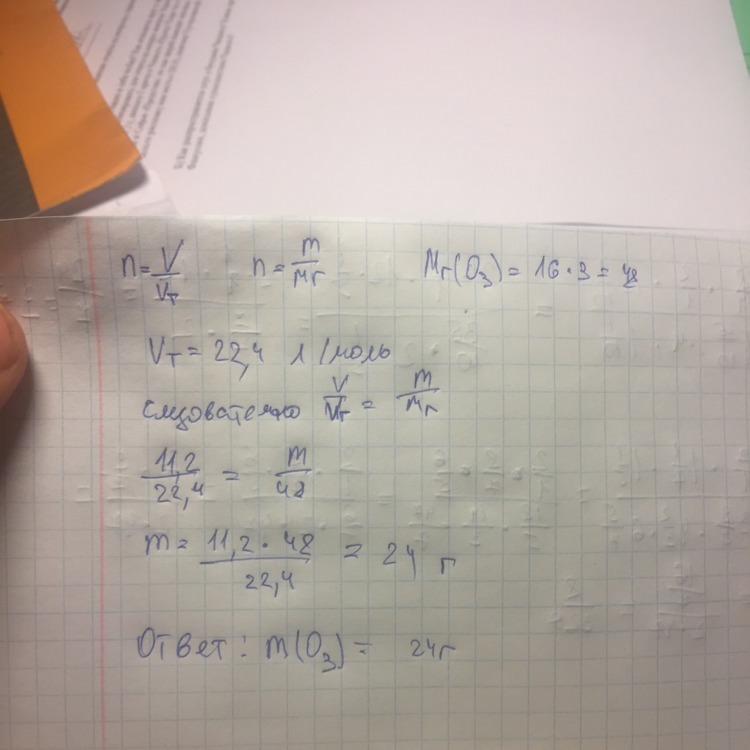 n = V/Vт   n = m/Mr   Mr(O₃) = 16 · 3 = 48
Vт = 22,4 л/моль
следовательно V/Vт = m/Mr
11,2/22,4 = m/48
m = 11,2 · 48/22,4 = 24 г
Ответ: m(O₃) = 24г